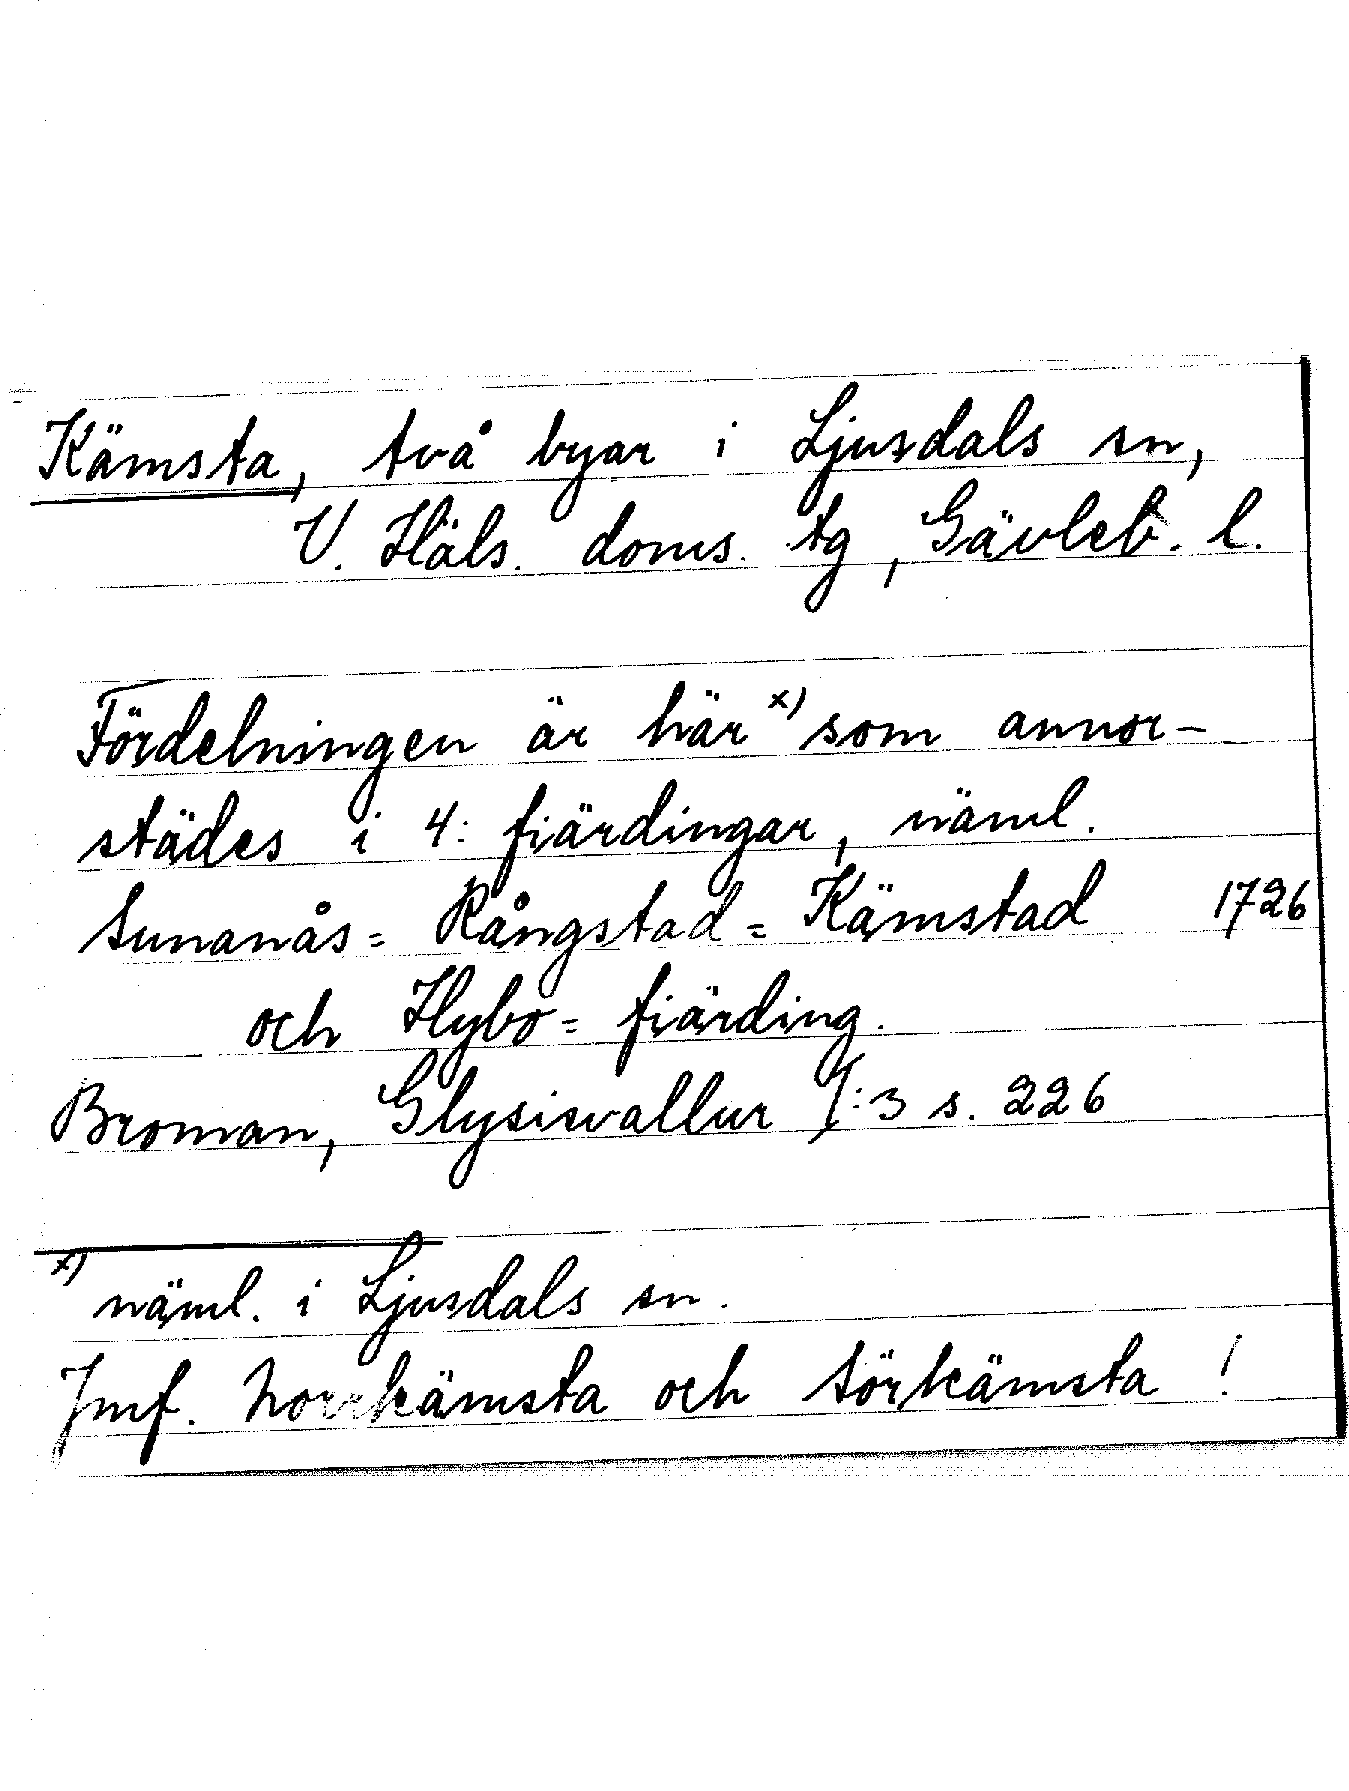 Kämsta, två byar i Ljusdals sn,
V. Häls. doms. tg, Gävleb. l.
Fördelningen är här x) som annor-
städes i 4: fiärdingar, näml.
Sunanås= Kångstad= Kämstad 1726
och Hybo= fiärding.
Broman, Glysisvallur I:3 s. 226
x) näml. i Ljusdals sn.
Jmf. Norrkämsta och Sörkämsta!